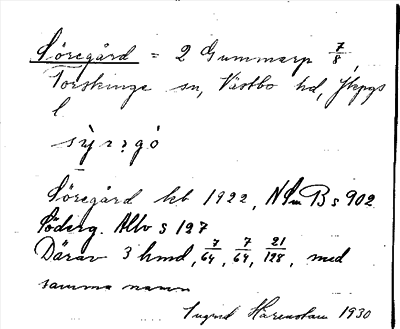 Söregård = 2 Gummarp 7/8,
Torskinge sn, Västbo hd, Jkpgs
l
Söregård kb 1922, NSmB s 902
Söderg. Allv s 197
Därav 3 hmd, 7/64, 7/64, 21/128, med
samma namn
Ingrid 1930